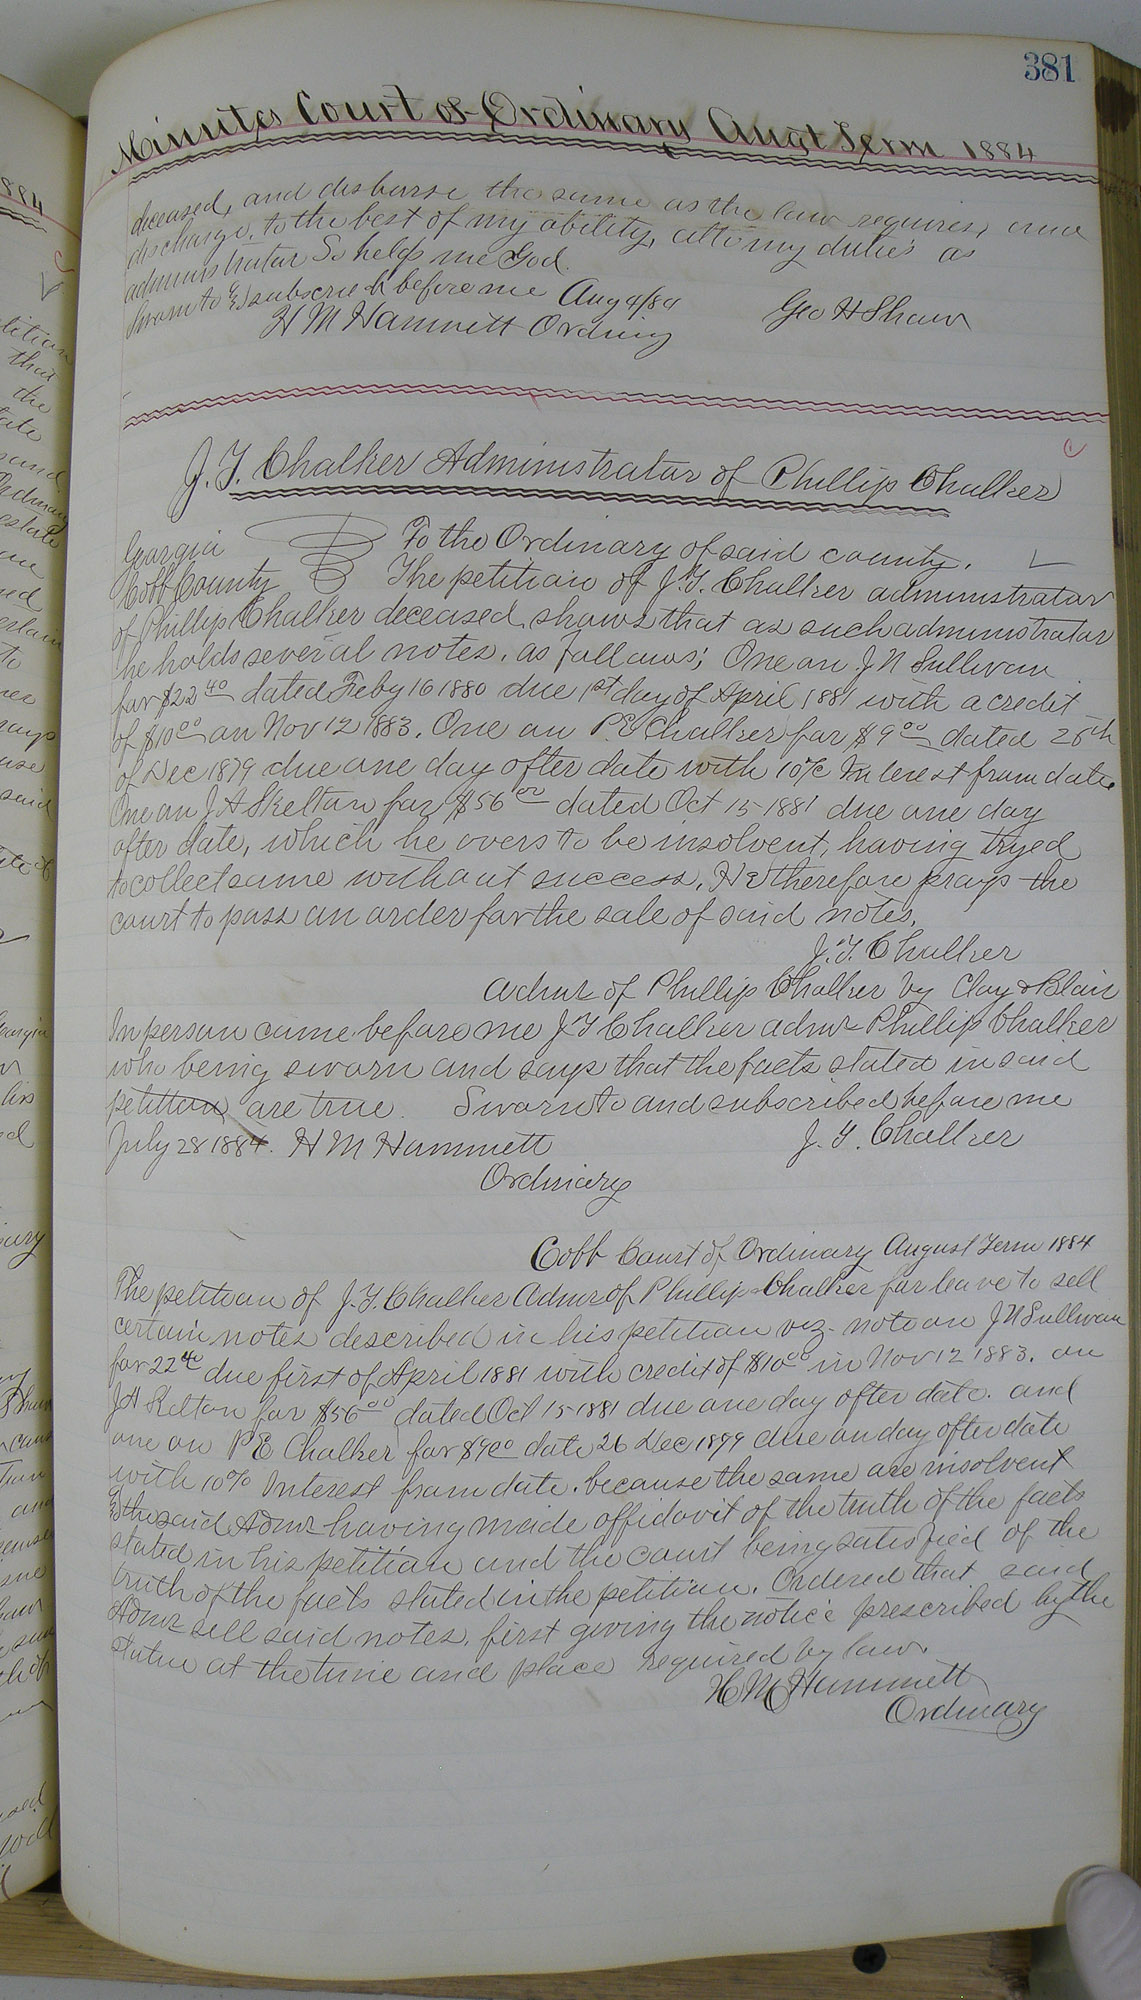 381
Minutes Court of Ordinary Augt Term 1884
deceased, and disburse the same as the law requires, and
discharge, to the best of my ability, all my duties as
administrator So help me God.
Sworn to & subscribed before me Aug 4/84 Geo H Shaw
H M Hammett Ordinary
J. T. Chalker Administrator of Phillip Chalker
Georgia To the Ordinary of said county.
Cobb County The petition of J. T. Chalker administrator
of Phillip Chalker deceased, shows that as such administrator
he holds several notes, as follows; One on J N Sullivan
for $22 40 dated Feby 16 1880 due 1st day of April 1881 with a credit
of $10 00 on Nov 12 1883. One on P. E Chalker for $9 00 dated 26th
of Dec 1879 due one day after date with 10% Interest from date.
One on J A Skelton for $56 00 dated Oct 15 1881 due one day
after date, which he avers to be insolvent, having tryed
to collect same without success, He therefore prays the
court to pass an order for the sale of said notes.
J. T. Chalker
admr of Phillip Chalker by Clay & Blair
In person came before me J T Chalker admr Phillip Chalker
who being sworn and says that the facts stated in said
petition are true. Sworn to and subscribed before me
July 28 1884. H M Hammett J. T. Chalker
Ordinary
Cobb Court of Ordinary August Term 1884
The petition of J. T. Chalker Admr of Phillip Chalker for leave to sell
certain notes described in his petition viz - note on J N Sullivan
for 22 40 due first of April 1881 with credit of $10 00 in Nov 12 1883. on
J A Skelton for $56 00 dated Oct 15 1881 due one day after date. and
one on P E Chalker for $9 00 date 26 Dec 1879 due on day after date
with 10% Interest from date. because the same are insolvent
& the said Admr having made affidavit of the truth of the facts
stated in his petition and the court being satisfied of the
truth of the facts stated in the petition. Ordered that said
Admr sell said notes, first giving the notice prescribed by the
statue at the time and place required by law.
H M Hammett
Ordinary